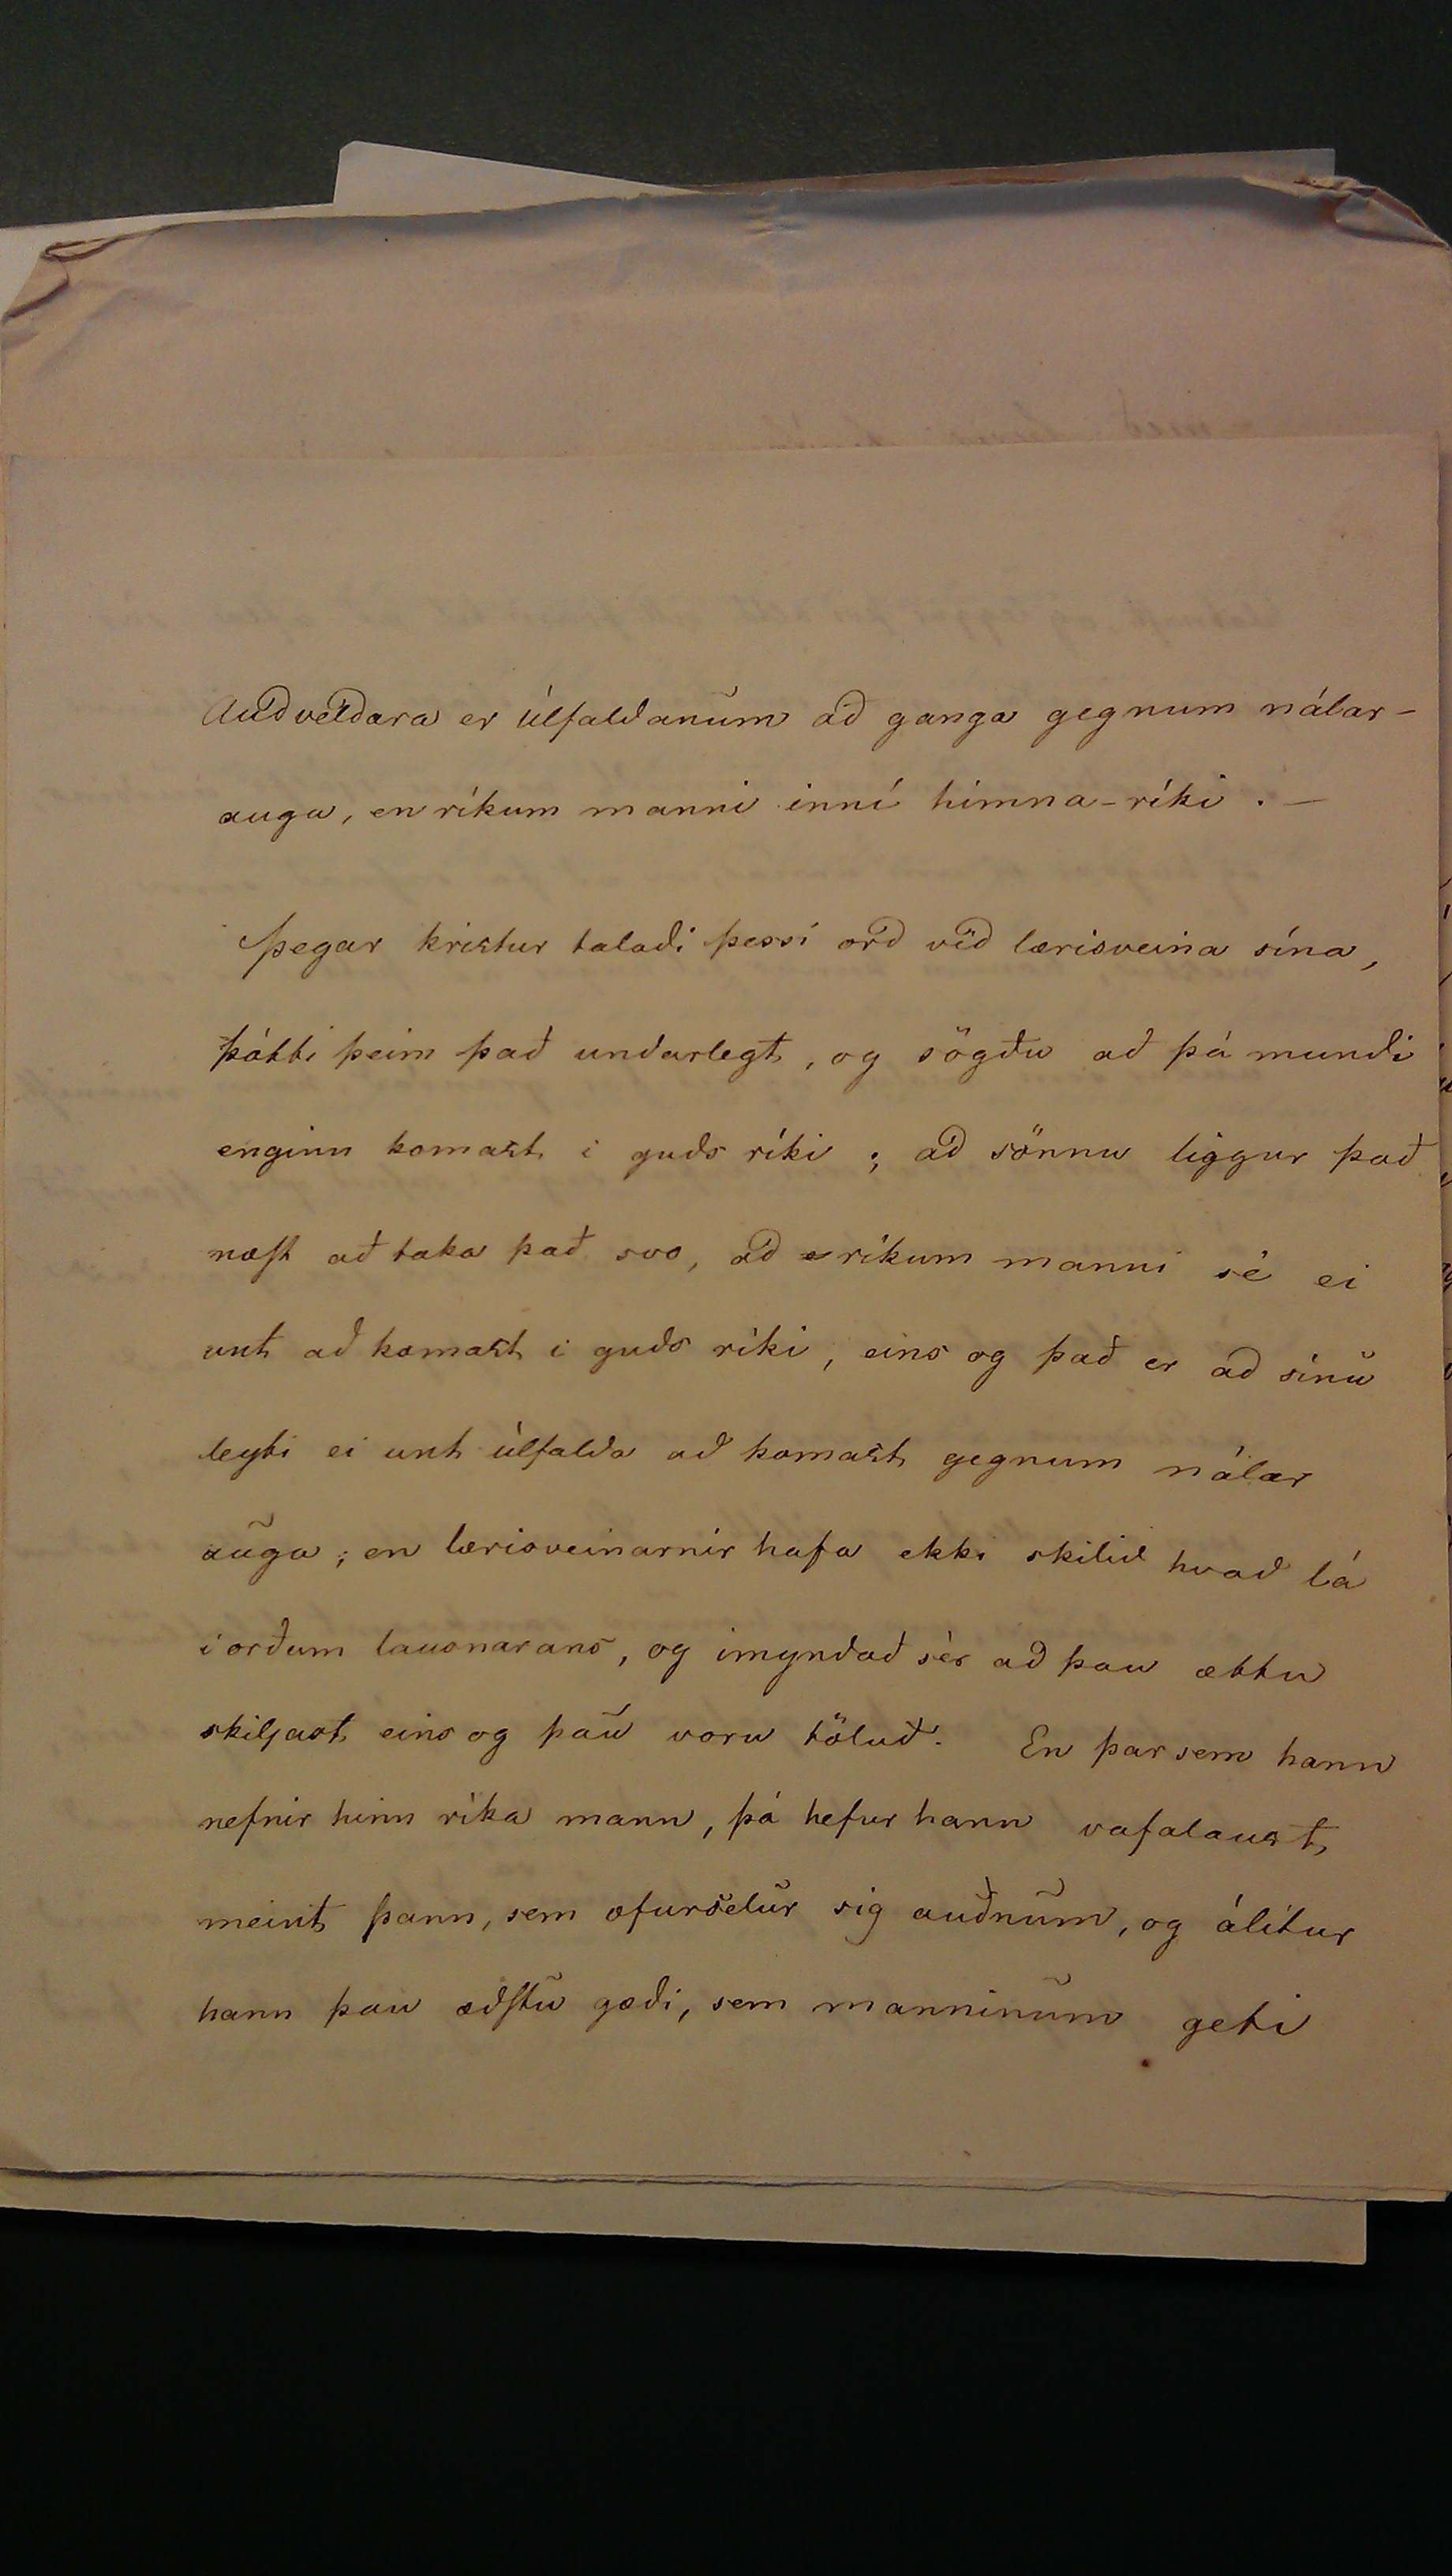 Auðveldara er úlfaldanum að ganga gegnum nálar-
auga, en ríkum manni inní himna-ríki. —
Þegar kristur talaði þessi orð við lærisveina sína,
þótti þeim það undarlegt, og sögðu að þá mundi
enginn komast i guðs ríki; að sönnu liggur það
næst að taka það svo, að ríkum manni sé ei
unt að komast i guðs ríki, eins og það er að sínu
leyti ei unt úlfalda að komast gegnum nálar
auga; en lærisveinarnir hafa ekki skilið hvað lá
i orðum lausnarans, og imyndað sèr að þau ættu
skiljast eins og þau voru töluð. En þar sem hann
nefnir hinn ríka mann, þá hefur hann vafalaust
meint þann, sem ofurselur sig auðnum, og álítur
hann þau æðstu gæði, sem manninum geti